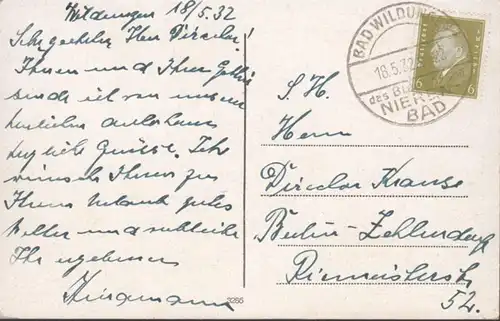 Wildungen 18/5.32
Sehr geehrter Herr Director!
Ihnen und Ihrer Gattin
sende ich von unserem
herzliche
Grüsse. Ich
wünsche Ihnen zu
Ihrem Urlaub gutes
Wetter und verbleibe
Ihr ergebener
BAD WILDUNGEN
18.5.32
des
NIEREN
BAD
6 6
S. H.
Herrn
Director Krause
Berlin-Zehlendorf
Riemeisterstr.
52.
3285